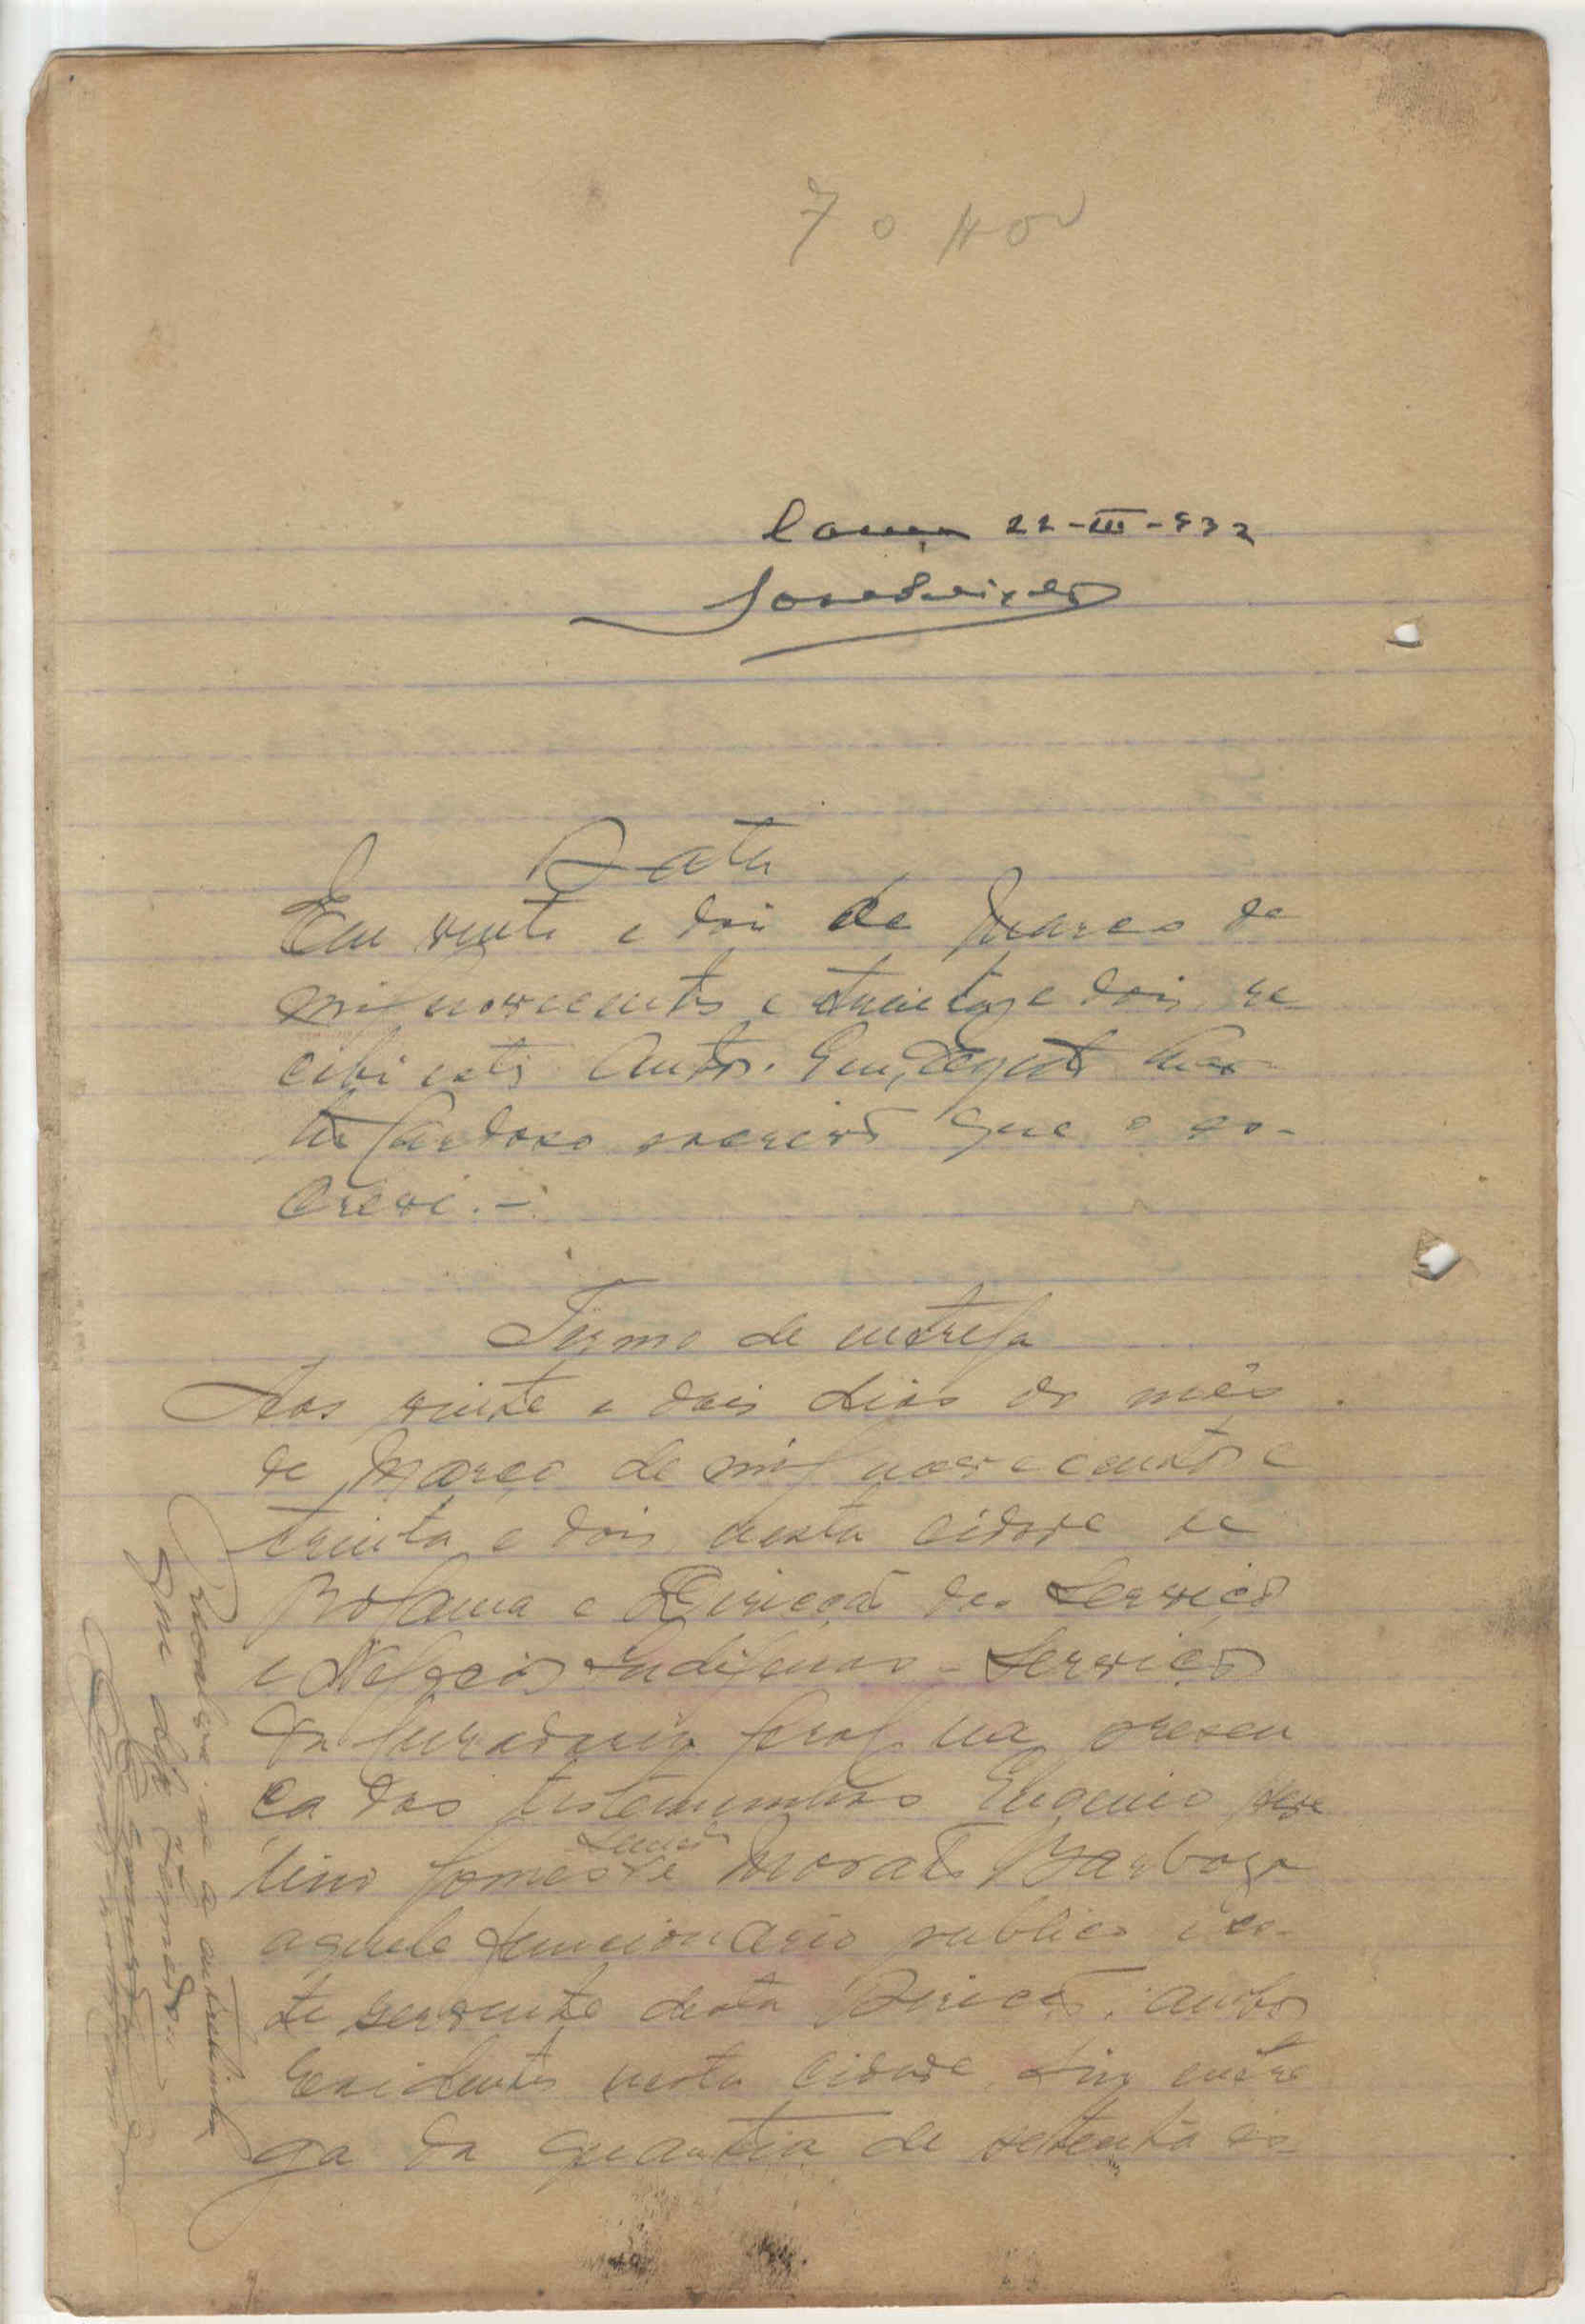 22-III-932
Data
Em vinte e dois de Março de
mil novecentos e trinta e dois re
cebi estes autos. Eu,
Cardoso escrivão que o es-
crevi.-
Termo de entrega
Aos vinte e dois dias do mês
de Março de mil novecentos e
trinta e dois, nesta cidade de
Bolama e Direcção dos Serviços
e Negocios Indigenas - Serviços
da Curadoria Geral, na presen
ça das testemunhas Eugenio
tino Gomes e Morais Barbosa
aquele funcionario publico e es-
te servente desta Direcção, ambos
residentes nesta cidade, fiz entre
ga da quantia de setenta es-
Resalva-se a entrelinha
que diz